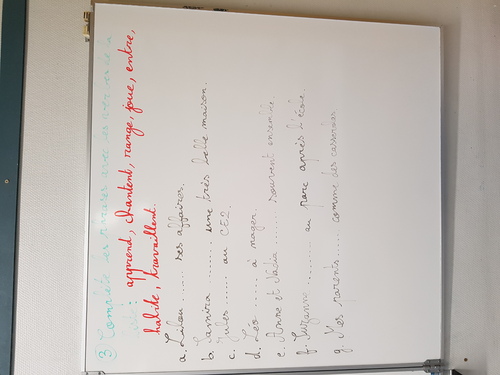 ③ Complète les phrases avec les verbes
: apprend, chantent, range, joue, entre,
habite, travaillent.
a. Lilou ...... ses affaires.
b. Samira ......... une très belle maison.
c. Jules ....... au CE2.
d. Léo ...... à nager.
e. Anne et Nadia ........ souvent ensemble.
f. Suzanne .......... au parc après l'école.
g. Mes parents ..... comme des casseroles.